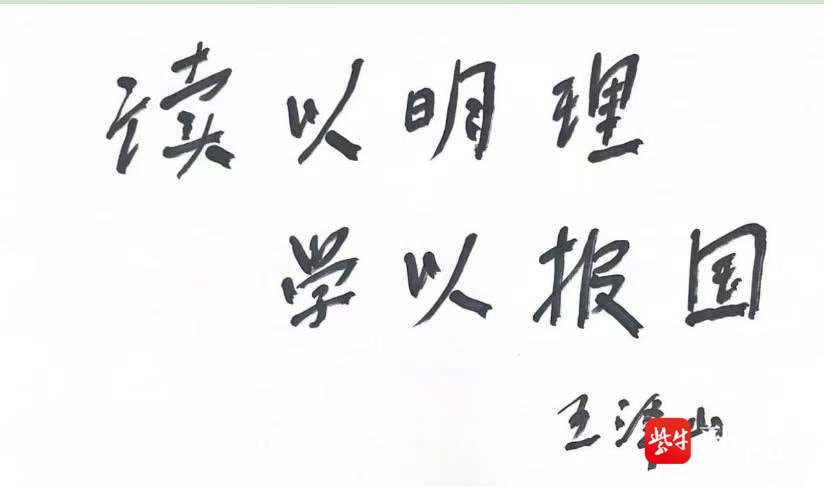 读以明理
学以报国
王泽山
紫牛